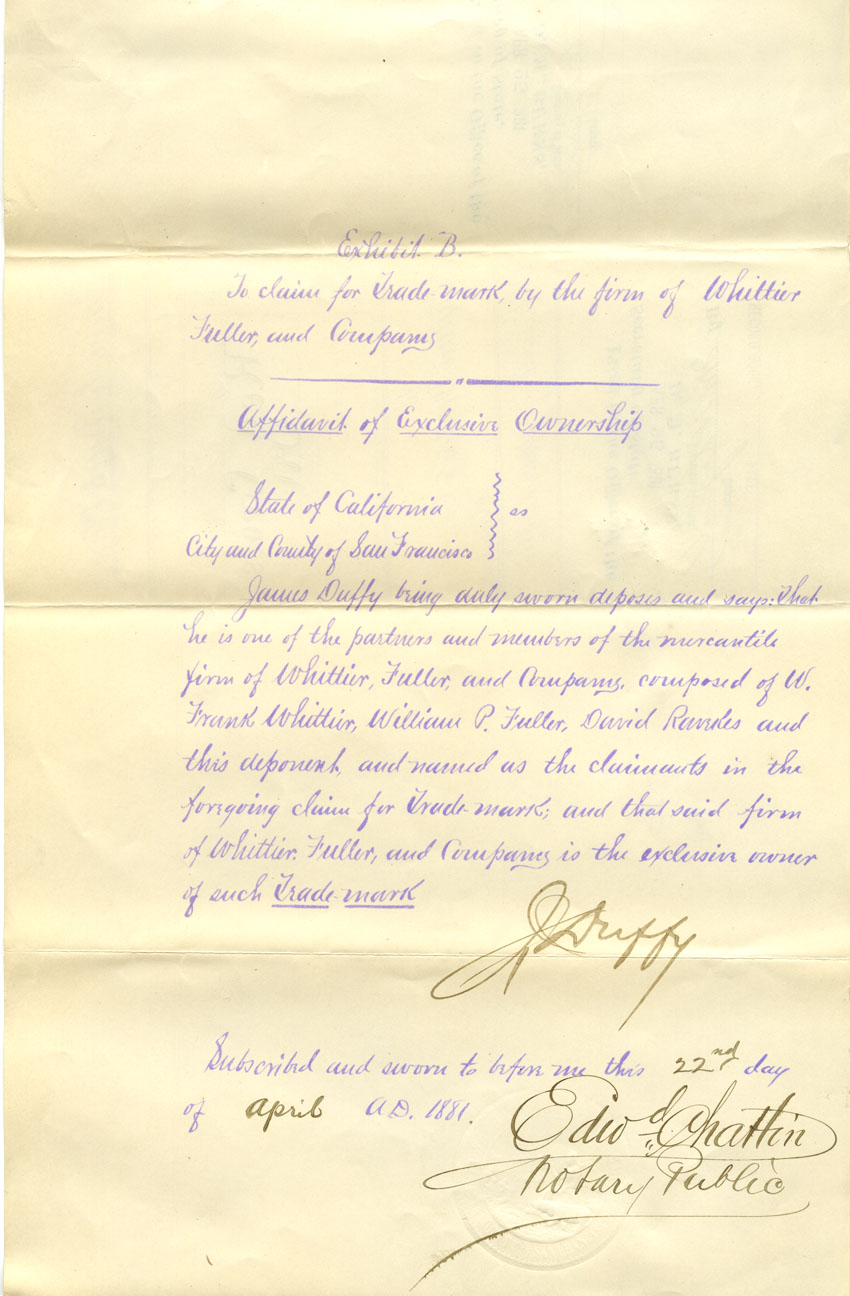 Exhibit B.
To claim for Trade-mark, by the firm of Whittier
Fuller, and Company
Affidavit of Exclusive Ownership
State of California
ss
City and County of San Francisco
James Duffy being duly sworn deposes and says: That
he is one of the partners and members of the mercantile
firm of Whittier, Fuller, and Company, composed of W.
Frank Whittier, William P. Fuller, David and
this deponent, and named as the claimants in the
foregoing claim for Trade-mark; and that said firm
of Whittier, Fuller, and Company is the exclusive owner
of such Trade-mark
J Duffy
Subscribed and sworn to before me this 22nd day
of April A.D. 1881.
Edwd Chattin
Notary Public